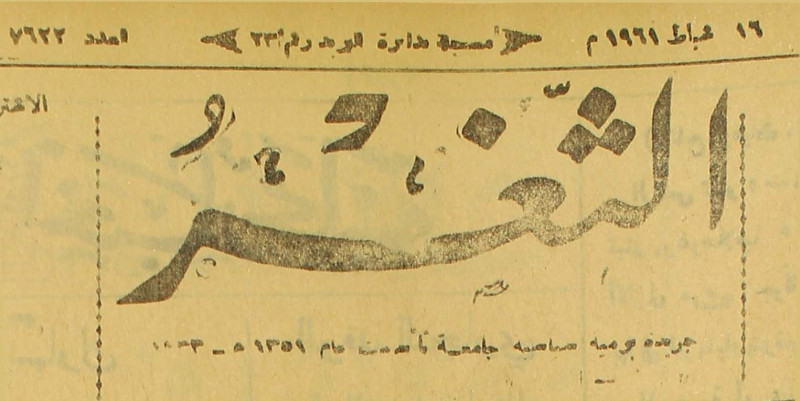 ١٦ شباط ١٩٦١ م مسجلة بدائرة البريد رقم ٢٣ العدد ٧٦٢٢
الثغر
جريدة يومية سياسية جامعة تأسست عام ١٣٥١ هـ